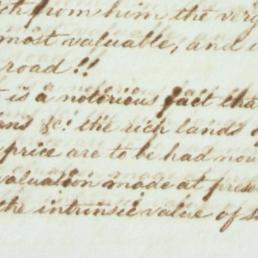 from him, the very
most valuable, and
road!!
is a notorious fact tha
&c: the rich lands
price are to be had now
valuation made at prese
the intrinsic value of s